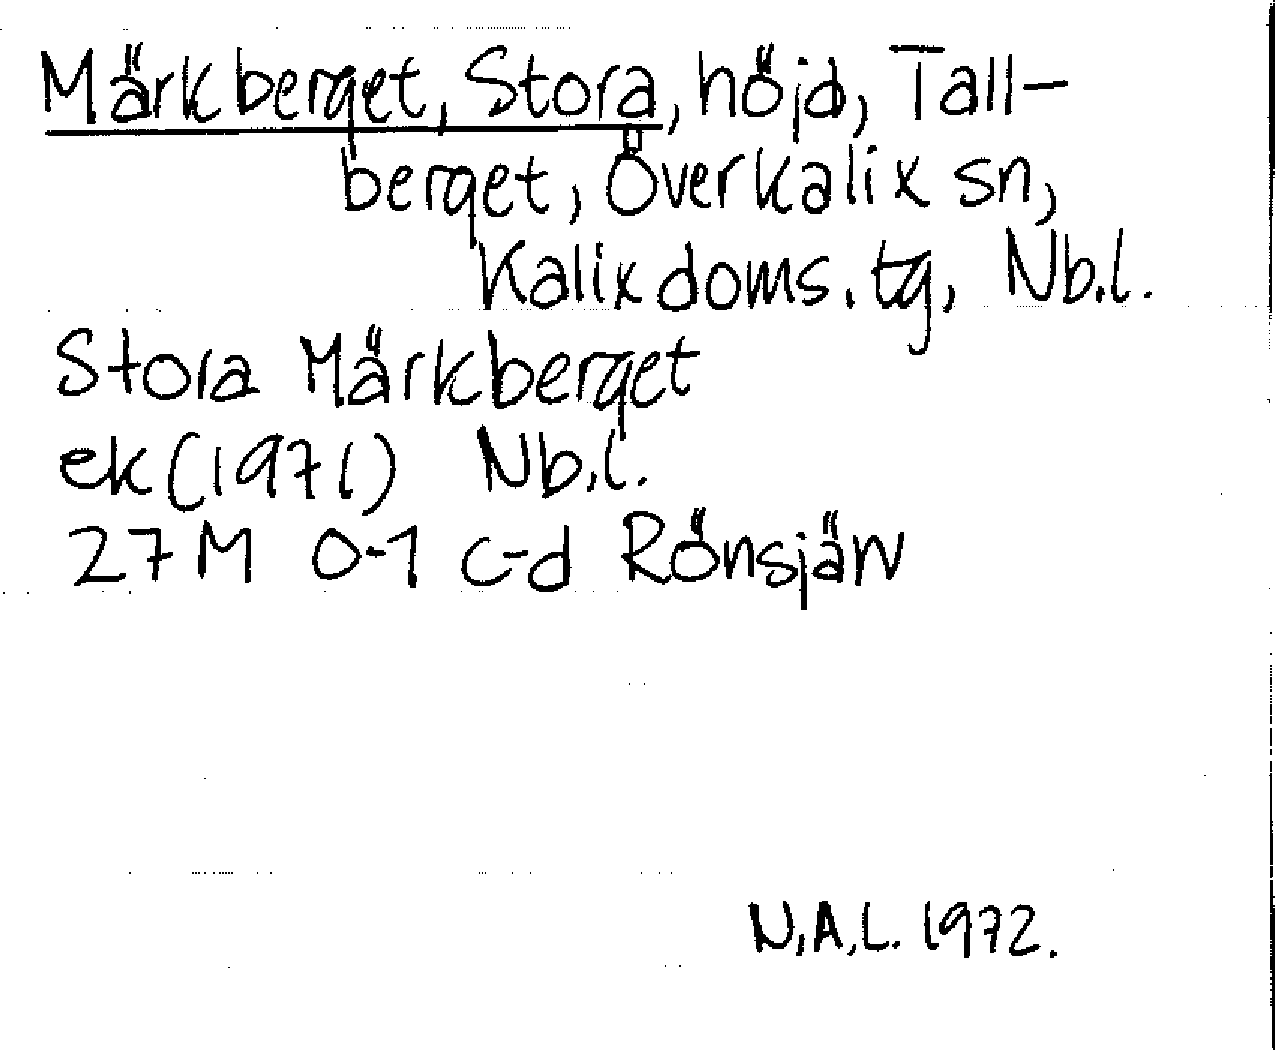 Märkberget, Stora, höjd, Tall-
berget, Överkalix sn,
Kalix doms.tg, Nb.l.
Stora Märkberget
ek (1971) Nb.l.
27M 0-1 c-d Rönsjärv
N.A.L. 1972.